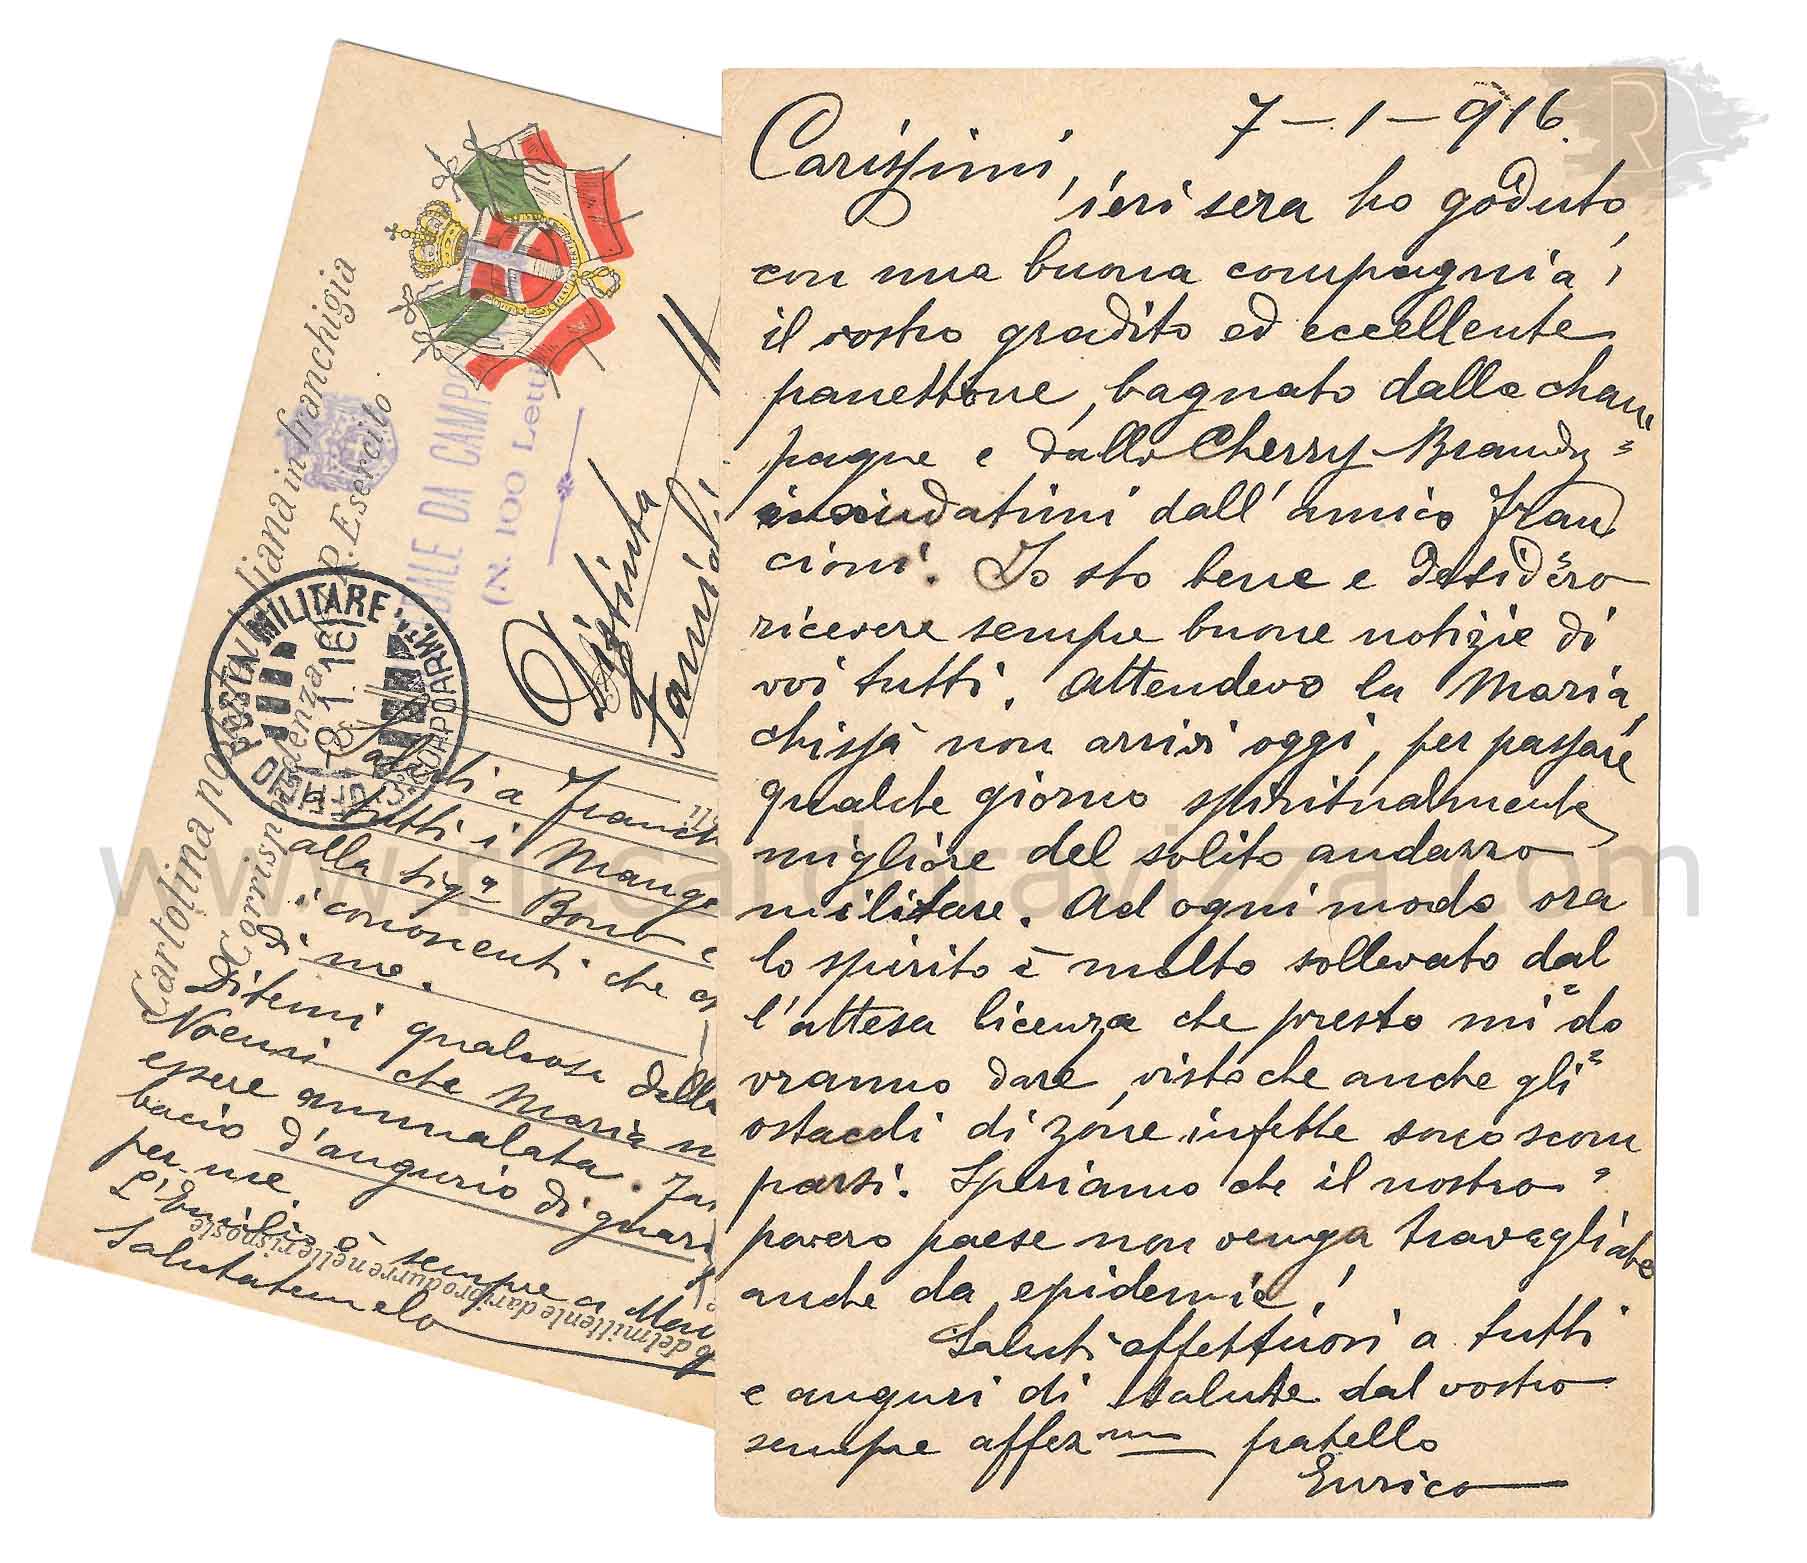 7-1-916.
Carissimi,
ieri sera ho goduto,
con una buona compagnia,
il vostro gradito ed eccellente
panettone, bagnato dallo cham=
pagne e dallo Cherry Brandy
inviatimi dall'amico Fran=
cioni. Io sto bene e desidero
ricevere sempre buone notizie di
voi tutti. Attendevo la Maria,
chissà non arrivi oggi, per passare
qualche giorno spiritualmente
migliore del solito andazzo
militare. Ad ogni modo ora
lo spirito è molto sollevato dal=
l'attesa licenza che presto mi do=
vranno dare, visto che anche gli
ostacoli di zone infette sono scom=
parsi. Speriamo che il nostro
povero paese non venga travagliato
anche da epidemie!
Saluti affettuosi a tutti
e auguri di salute dal vostro
sempre affezmo fratello
Enrico
Cartolina po liana in franchigia
Corrispondenza R. Esercito.
DALE DA CAMPO
(N. 100 Lett
UFFICIO POSTA MILITARE
8.1.16
3 CORPO ARMTA
Distinta
Famigl
Saluti a Franc
a tutti i Mange
alla siga Bono e
i conoscenti che
di me.
Ditemi qualcosa della
Noemi che Maria m
essere ammalata.
bacio d'augurio di guari
per me.
L'Emilio è sempre a
Salutatemelo
del mittente da riprodurre nelle risposte
www.riccardoravizza.com
R